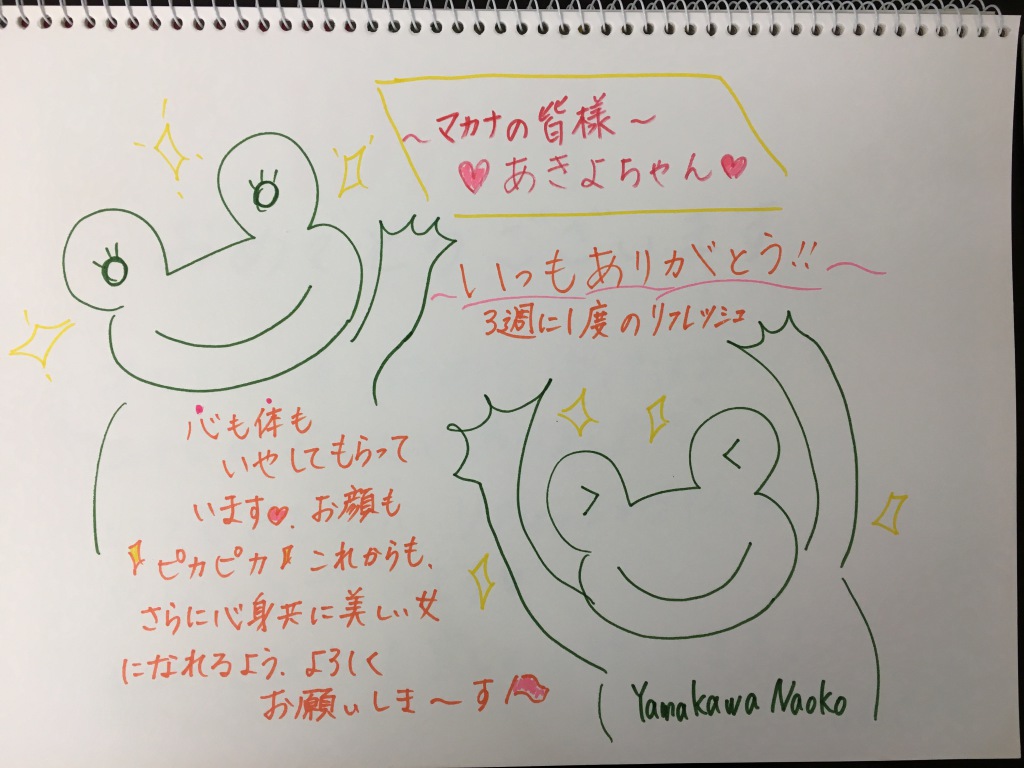 ～マカナの皆様～
♥あきよちゃん♥
～いつもありがとう!!～
3週に1度のリフレッシュ
心も体も
いやしてもらって
います♥. お顔も
ピカピカ これからも、
さらに心身共に美しい女
になれるよう、よろしく
お願いしま～す
Yamakawa Naoko